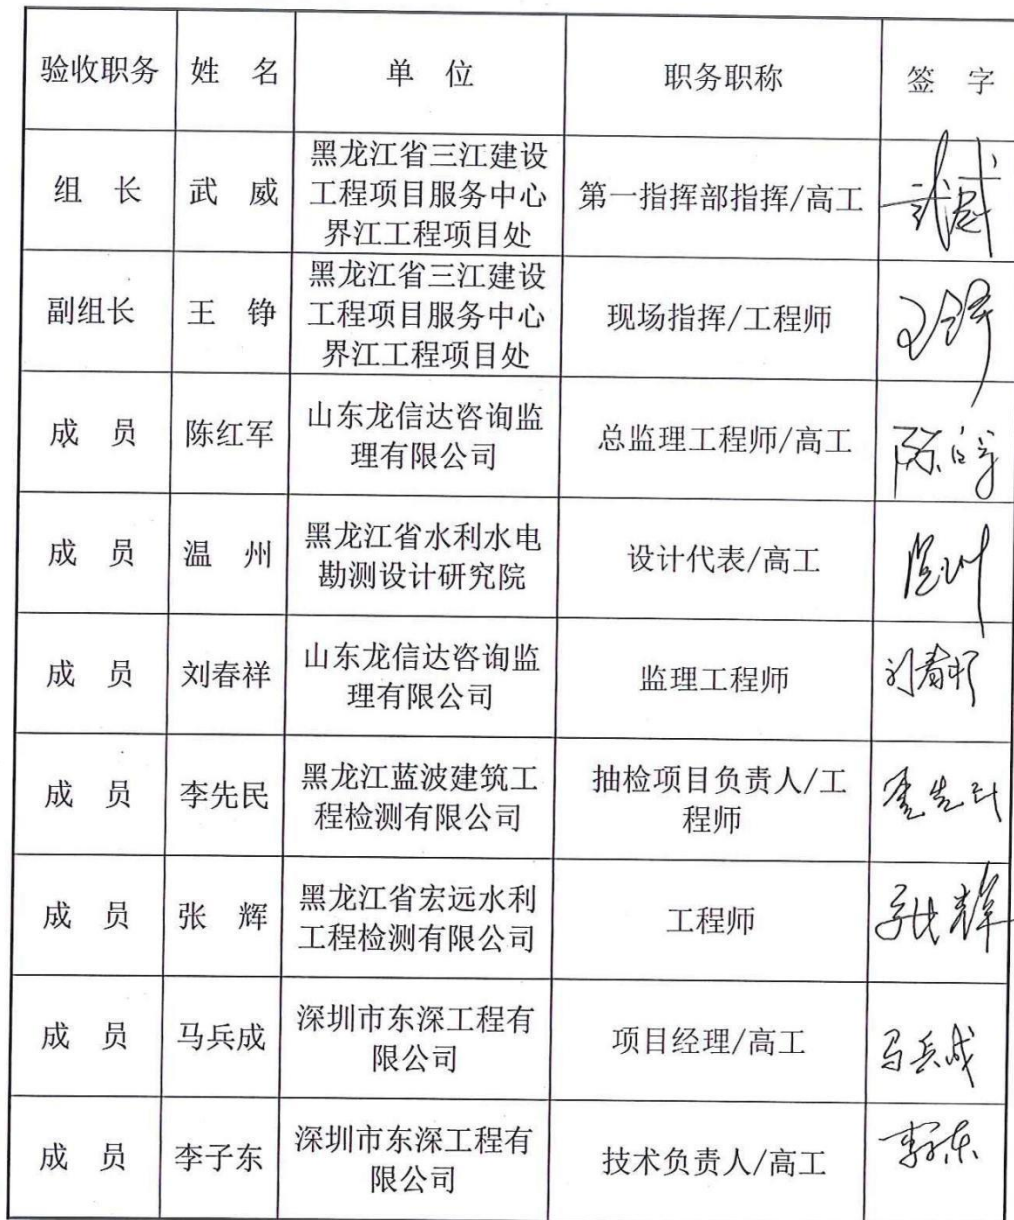 验收职务 姓 名 单 位 职务职称 签 字
组 长 武 威 黑龙江省三江建设
工程项目服务中心
界江工程项目处 第一指挥部指挥/高工 武威
副组长 王 铮 黑龙江省三江建设
工程项目服务中心
界江工程项目处 现场指挥/工程师 王铮
成 员 陈红军 山东龙信达咨询监
理有限公司 总监理工程师/高工 陈红军
成 员 温 州 黑龙江省水利水电
勘测设计研究院 设计代表/高工 温州
成 员 刘春祥 山东龙信达咨询监
理有限公司 监理工程师 刘春祥
成 员 李先民 黑龙江蓝波建筑工
程检测有限公司 抽检项目负责人/工
程师 李先民
成 员 张 辉 黑龙江省宏远水利
工程检测有限公司 工程师 张辉
成 员 马兵成 深圳市东深工程有
限公司 项目经理/高工 马兵成
成 员 李子东 深圳市东深工程有
限公司 技术负责人/高工 李子东